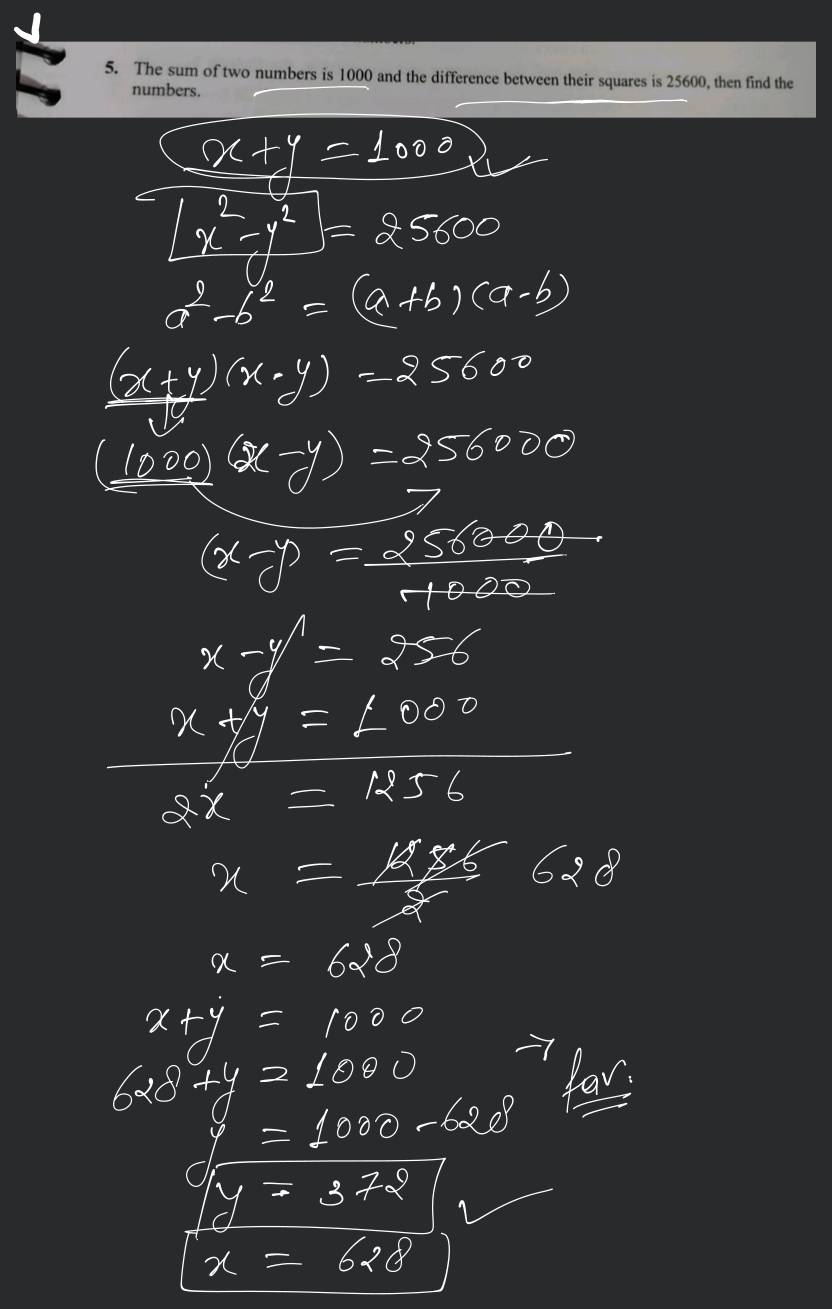 5. The sum of two numbers is 1000 and the difference between their squares is 25600, then find the
numbers.
x+y = 1000
x² - y² = 25600
a² - b² = (a+b)(a-b)
(x+y)(x-y) = 25600
(1000)(x-y) = 256000
(x-y) = 256000/1000
x-y = 256
x+y = 1000
2x = 1256
x = 1256/2 628
x = 628
x+y = 1000
628+y = 1000
→ far.
y = 1000-628
y = 372
x = 628